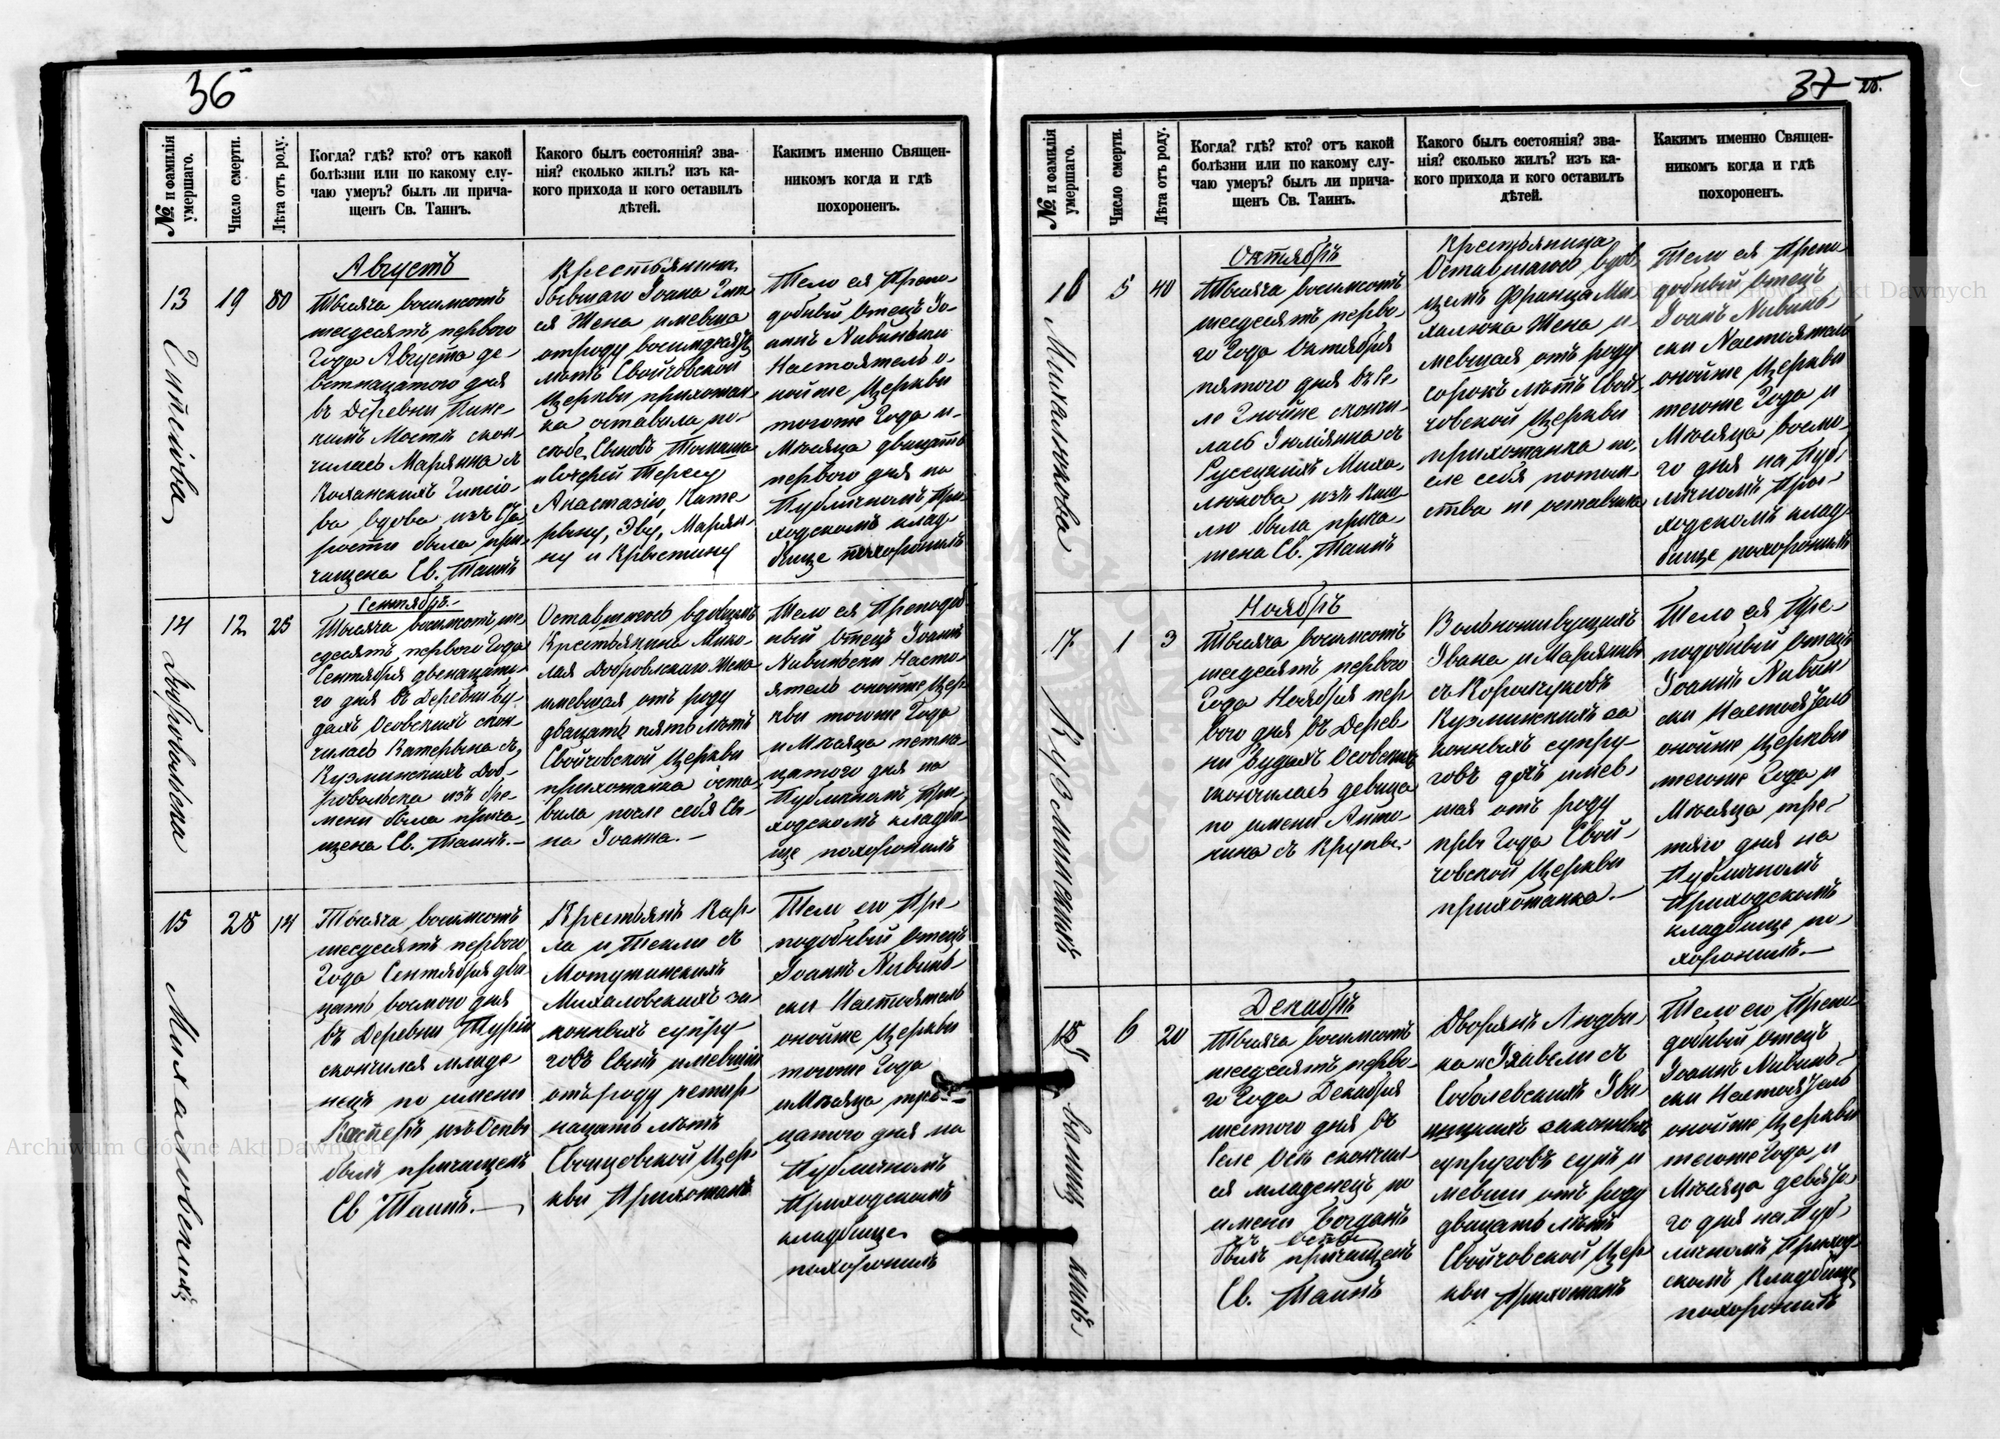 36
№ и фамилія умершаго.
Число смерти.
Лѣта отъ роду.
Когда? гдѣ? кто? отъ какой
болѣзни или по какому слу-
чаю умеръ? былъ ли прича-
щенъ Св. Таинъ.
Какого былъ состоянія? зва-
нія? сколько жилъ? изъ ка-
кого прихода и кого оставилъ
дѣтей.
Каким именно Священ-
никомъ когда и гдѣ
похороненъ.
13
19
80
Августъ
Тысяча восимсотъ
шесдесятъ первого
Года Августа де-
вʼятнацатого дня
въ Деревни
Мостѣ скон-
чилась Марянна з
вдова изъ Ста
рости была при-
чищена Св. Таинъ
Крестьянина
Бывшаго Іоана
ся Жена имевша
отроду восимдесятъ
летъ Свойчовской
Церкви прихожан-
ка оставила по-
себе Сыновъ Томаша
и Дочерей Терезу
Анастазію, Кате-
рыну, Эву, Марян-
ну и Крыстину
Тело ея Препо-
добный Отецъ Іо-
анъ Нивински
Настоятель о-
нойже Церкви
тогоже Года и
Мѣсяца двацать
первого дня на
Публичномъ При-
ходскомъ клад-
бище похоронилъ
14
Добровольска
12
25
Сентябръ
Тысяча восимсотъ ше
сдесятъ первого Года
Сентября двенацато-
го дня въ Деревни Бу-
дахъ Осовскихъ скон-
чилась Катерына зъ
Кузминскихъ Доб-
ровольска изъ бре-
мени была прича-
щена Св. Таинъ.—
Оставшагось вдовцемъ
Крестьянина Мико-
лая Добровльскаго Жена
имевшая отъ роду
двацать пять летъ
Свойчовской Церкви
прихожанка оста-
вила после себя Сы-
на Іоанна.—
Тело ея Преподоб-
ный Отецъ Іоанъ
Нивински Насто-
ятель онойже Цер-
кви тогоже Года
и Мѣсяца петна-
цатого дня на
Публичномъ При-
ходскомъ кладби-
ще похоронилъ
15
Михаловскихъ
28
14
Тысяча восимсотъ
шесдесятъ первого
Года Сентября два-
цать восмого дня
въ Деревни
скончился младе
нецъ по имени
Касперъ изъ Оспы
былъ причащенъ
Св Таинъ.—
Крестьянъ Кар-
ла и Текли зъ
Михаловскихъ за-
конныхъ супру-
говъ Сынъ имевший
отъ роду четыр-
нацать летъ
Церк-
кви Прихожанъ
Тело его Пре-
подобный Отецъ
Іоанъ Нивинь-
ски Настоятель
онойже Церкви
тогоже Года
и Мѣсяца трей-
цатого дня на
Публичномъ
Приходскомъ
кладбище
похоронилъ
37
№ и фамилія умершаго.
Число смерти.
Лѣта отъ роду.
Когда? гдѣ? кто? отъ какой
болѣзни или по какому слу-
чаю умеръ? былъ ли прича-
щенъ Св. Таинъ.
Какого былъ состоянія? зва-
нія? сколько жилъ? изъ ка-
кого прихода и кого оставилъ
дѣтей.
Каким именно Священ-
никомъ когда и гдѣ
похороненъ.
16
Михалюкова
5
40
Октябръ
Тысяча восимсотъ
шесдесятъ перво-
го Года Октября
пятого дня въ Се-
ле Гнойне сконч-
лась Юліянна зъ
Русецкихъ Миха-
люкова изъ каш-
лю была прича-
щена Св. Таинъ
Крестьянина
Оставшагось вдов-
цемъ Франца Ми-
халюка Жена и-
мевшая отъ роду
сорокъ летъ Свой-
човской Церкви
прихожанка по-
сле себя потом-
ства не оставила
Тело ея Препо-
добный Отецъ
Іоанъ Нивинь-
ски Настоятель
онойже Церкви
тогоже Года и
Мѣсяца восмо-
го дня на Пуб-
личномъ При-
ходскомъ клад-
бище похоронилъ
17
Кузминскихъ
1
3
Ноябръ
Тысяча восимсотъ
шесдесятъ первого
Года Ноября пер-
вого дня въ Дерев-
ни Будахъ Осовскихъ
скончилась девица
по имени Анто-
нина зъ Крупы.
Вольноживущихъ
Ивана и Марянны
зъ Корончуковъ
Кузминскихъ за
конныхъ супру-
говъ дочь имев-
шая отъ роду
три Года Свой-
човской Церкви
прихожанка.—
Тело ея Пре-
подобный Отецъ
Іоанъ Нивин
ски Настоятель
онойже Церкви
тогоже Года и
Мѣсяца тре-
тяго дня на
Публичномъ
Приходскомъ
кладбище по-
хоронилъ.—
18
6
20
Декабръ
Тысяча восимсотъ
шесдесятъ перво-
го Года Декабря
шестого дня въ
Селе скончил-
ся младенецъ по
имени Богданъ
былъ причащенъ
Св. Таинъ
Дворянъ Людви-
ка и Изабели зъ
Соболевскихъ
законныхъ
супруговъ сынъ и
мевши отъ роду
двацать летъ
Свойчовской Цер
кви Прихожанъ
Тело его Препо-
добный Отецъ
Іоанъ Нивинь-
ски Настоятель
онойже Церкви
тогоже Года и
Мѣсяца девято-
го дня на Пуб-
личномъ Приход-
скомъ Кладбище
похоронилъ
Archiwum Główne Akt Dawnych
Archiwum Główne Akt Dawnych